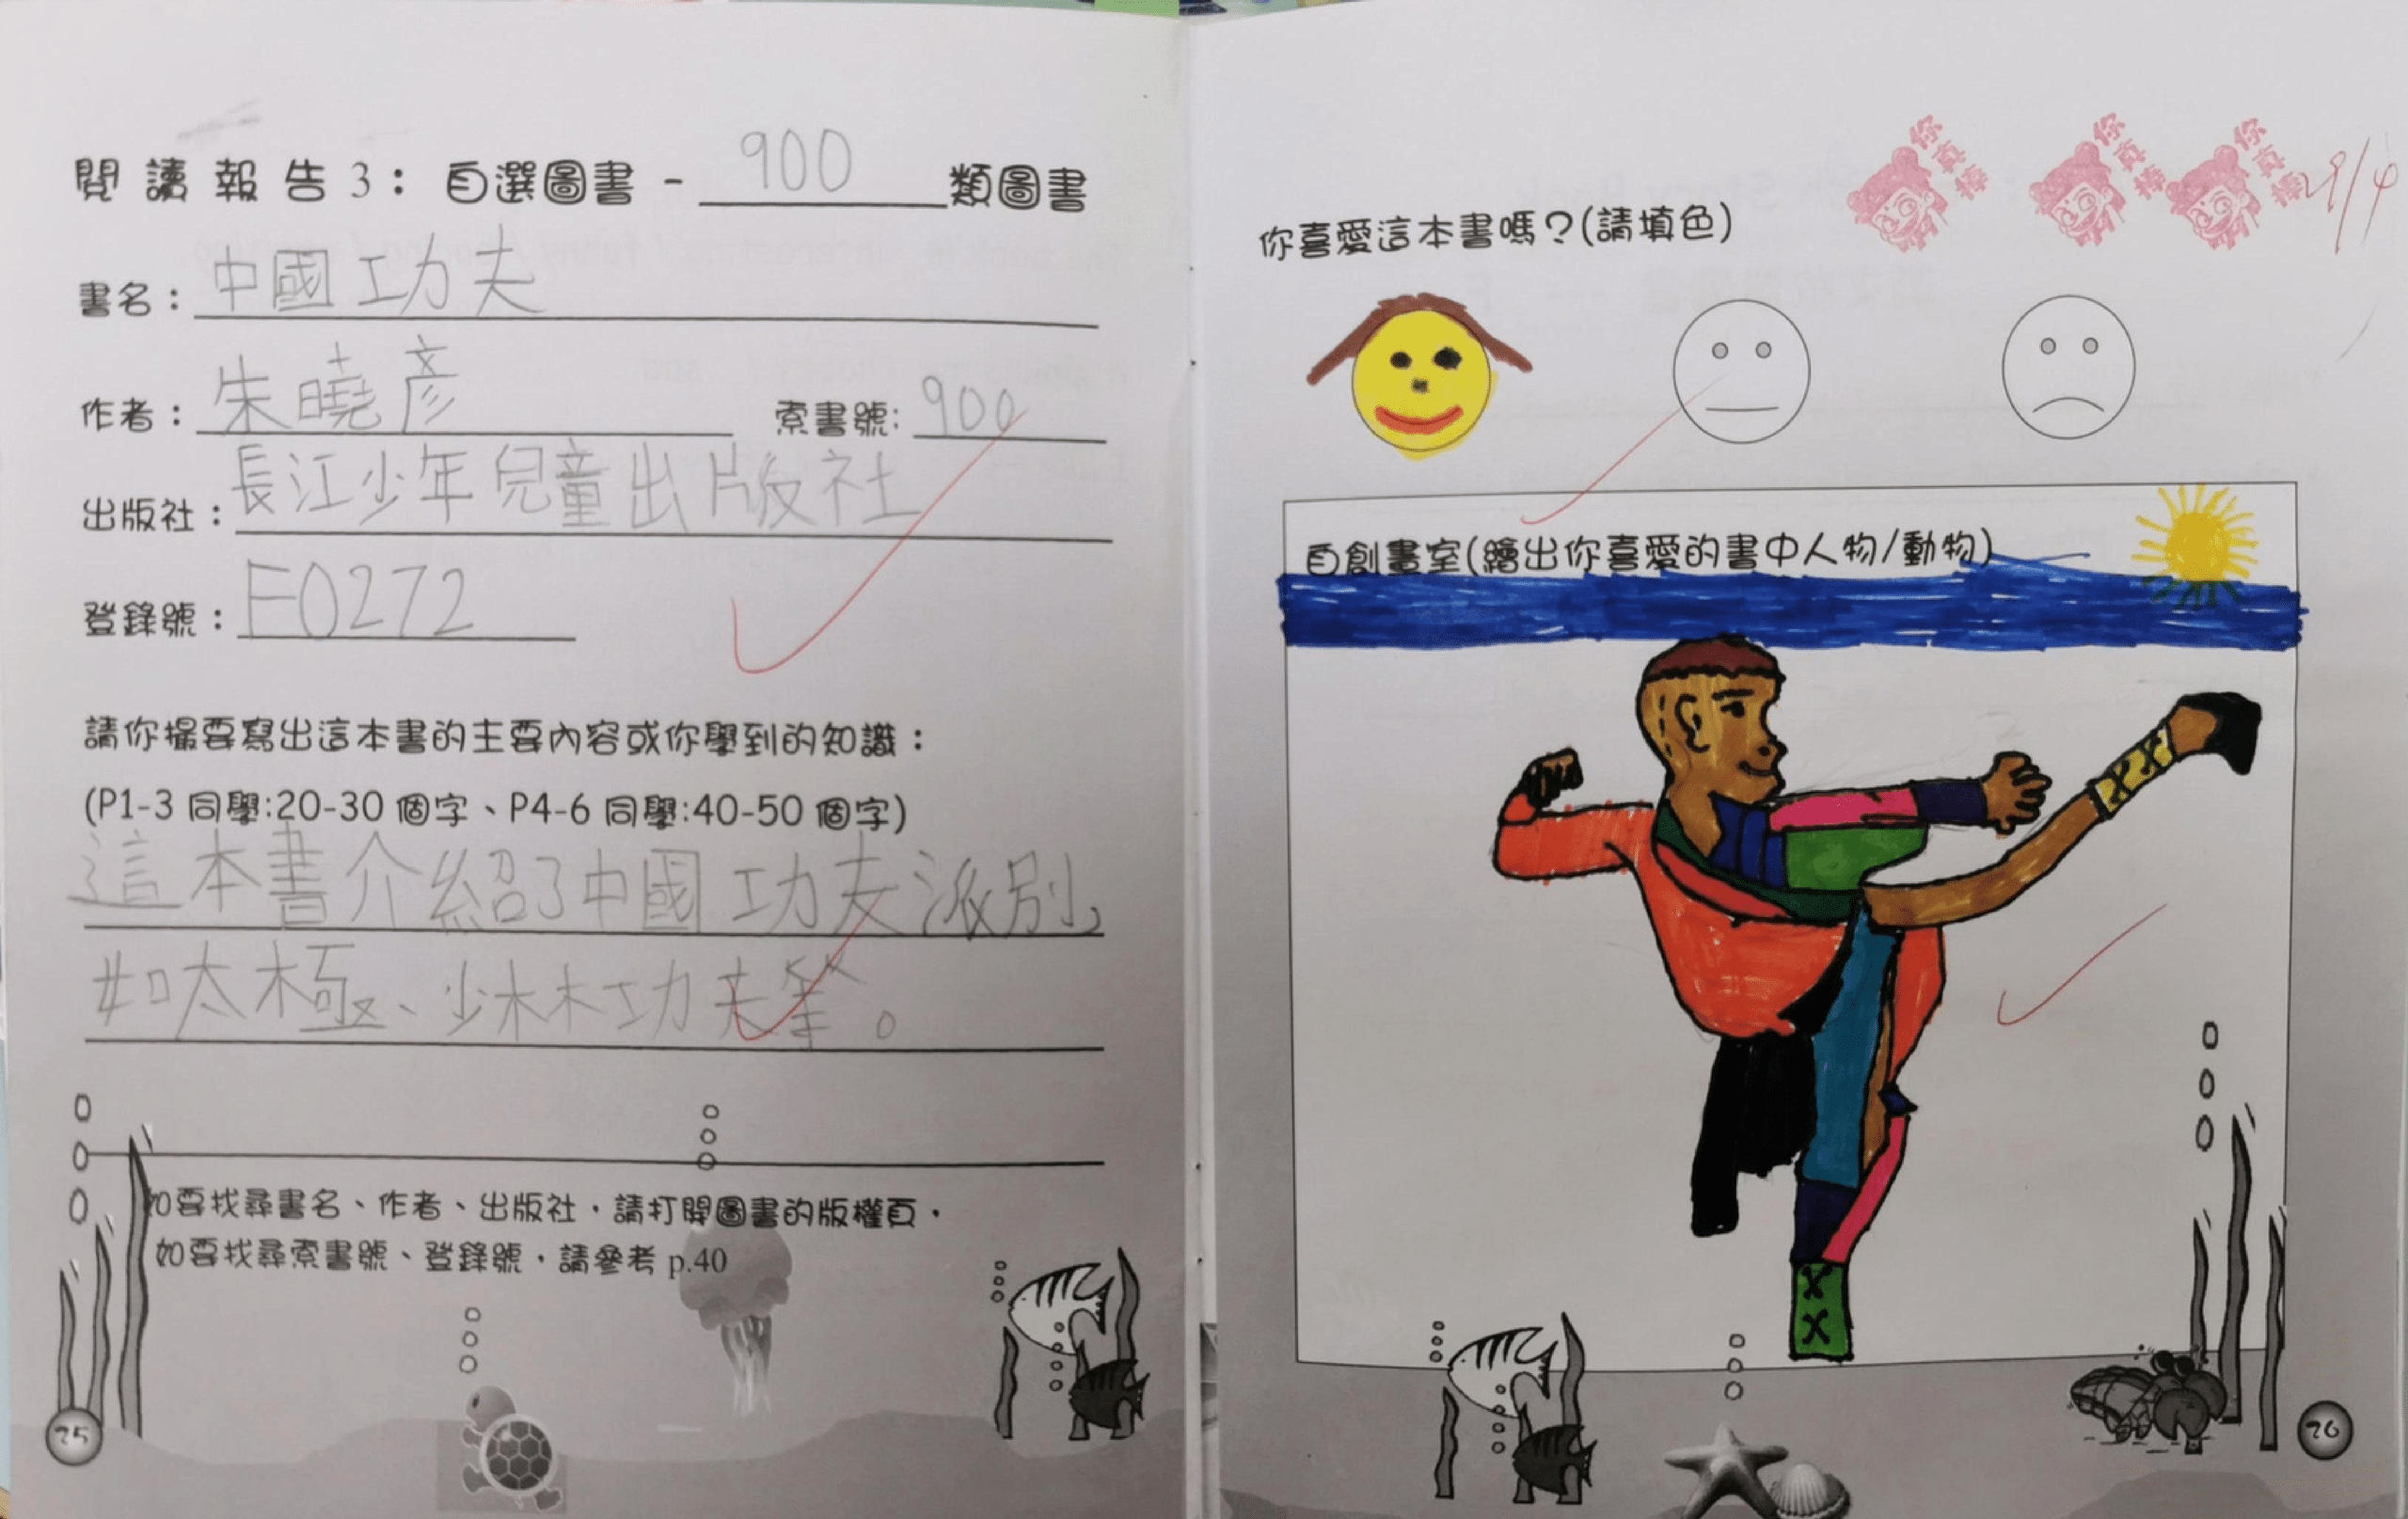 閱讀報告3：自選圖書 - 900 類圖書
書名：中國功夫
作者：朱曉彥 索書號: 900
出版社：長江少年兒童出版社
登錄號：F0272
請你撮要寫出這本書的主要內容或你學到的知識：
(P1-3 同學:20-30 個字、P4-6 同學:40-50 個字)
這本書介紹了中國功夫派別，
如太極、少林功夫等。
如要找尋書名、作者、出版社，請打開圖書的版權頁。
如要找尋索書號、登錄號，請參考 p.40
25
你真棒 你真棒 你真棒 29/4
你喜愛這本書嗎？(請填色)
自創畫室(繪出你喜愛的書中人物/動物)
26